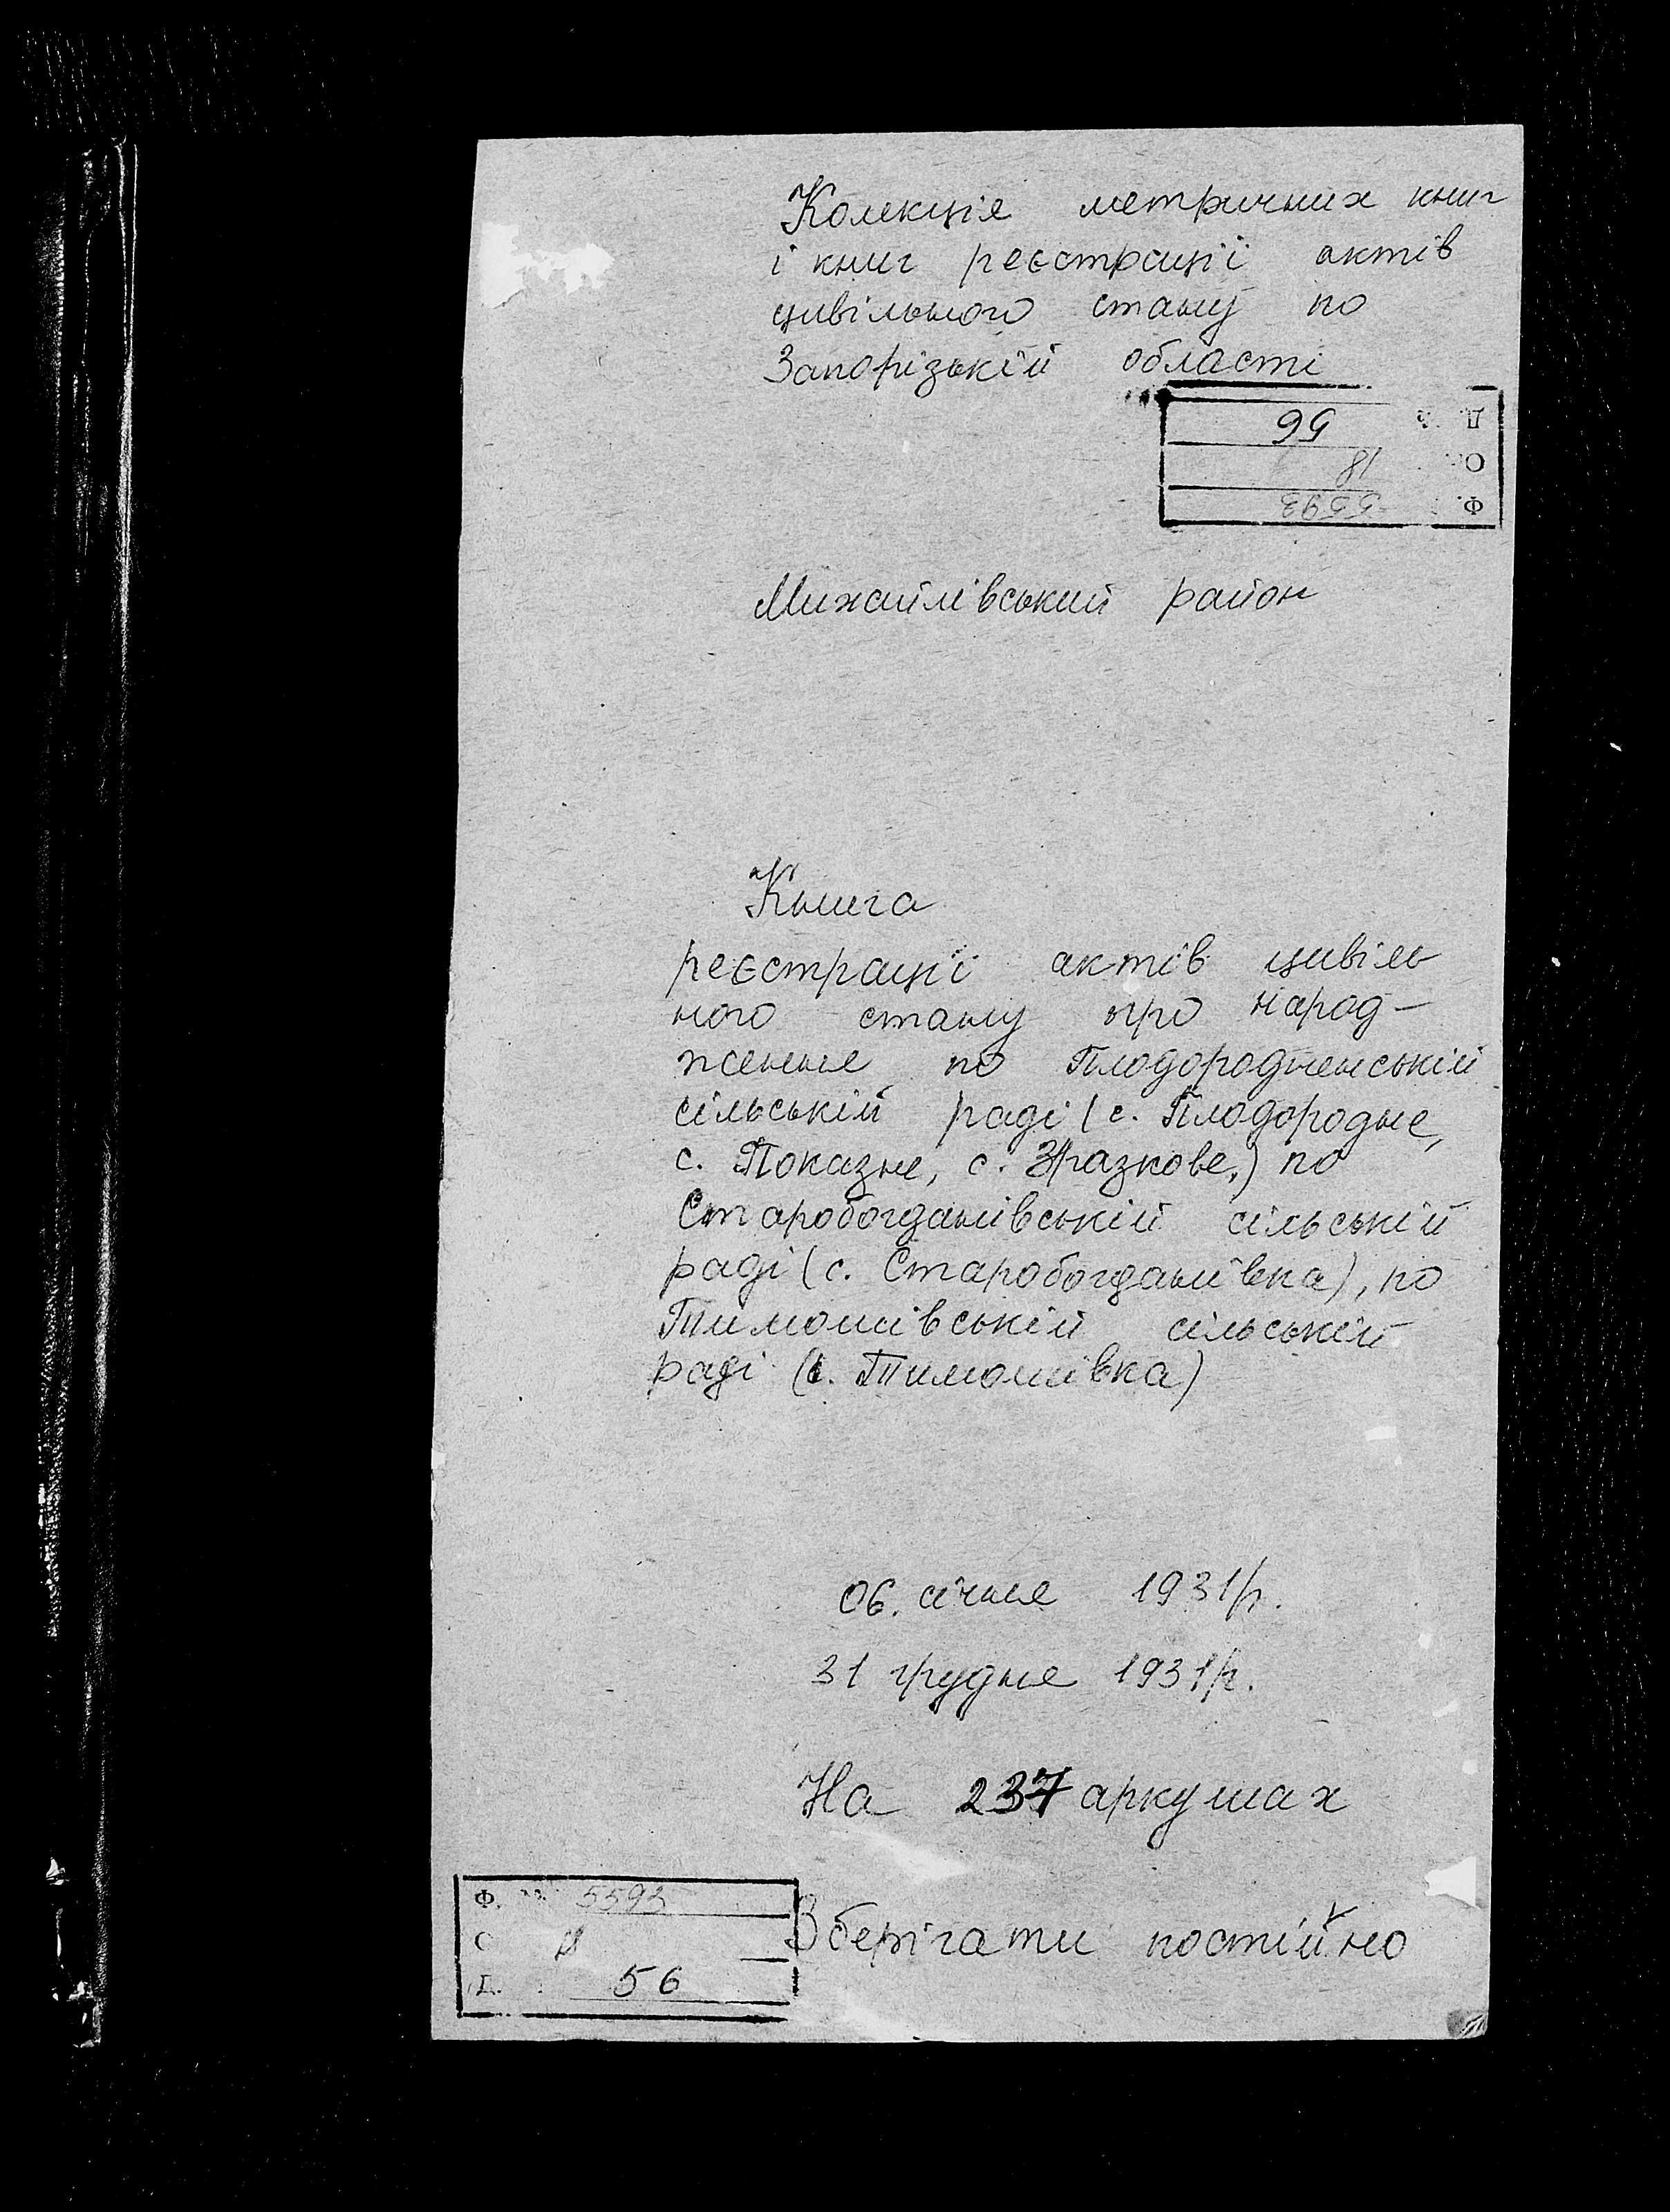 Колекція метричних книг
і книг реєстрації актів
цивільного стану по
Запорізькій області
Ф. 5593
О. 18
Д. 56
Михайлівський район
Книга
реєстрації актів цивіль
ного стану про народ-
ження по Плодородненській
сільській раді (с. Плодородне,
с. Показне, с. Зразкове,) по
Старобогданівській сільській
раді (с. Старобогданівка), по
Тимошівській сільській
раді (с. Тимошівка)
06. січня 1931р.
31 грудня 1931р.
На 237 аркушах
Зберігати постійно
Ф. 5593
О
Д. 56